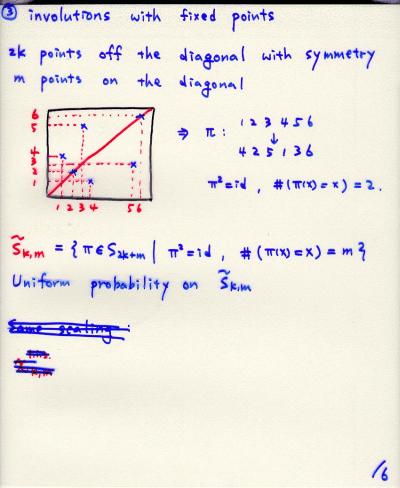 ③ involutions with fixed points
2k points off the diagonal with symmetry
m points on the diagonal
6
5
4
3
2
1
1 2 3 4 5 6
⇒ π: 1 2 3 4 5 6
↓
4 2 5 1 3 6
π²=id, #(π(x)=x)=2.
S̃k,m = {π∈S2k+m | π²=id, #(π(x)=x)=m}
Uniform probability on S̃k,m
Same scaling.
/6